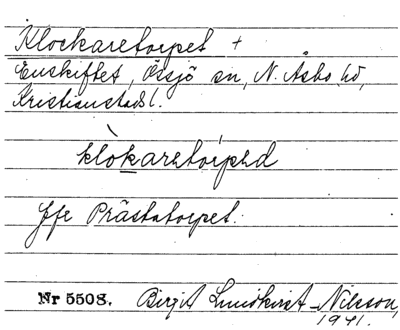 Klockaretorpet +
Enskiftet, Össjö sn, N. Åsbo hd,
Kristianstads l.
klòkaretòrped
Jfr Prästatorpet.
Nr 5508. Birgit Lundkvist-Nilsson,
1971.